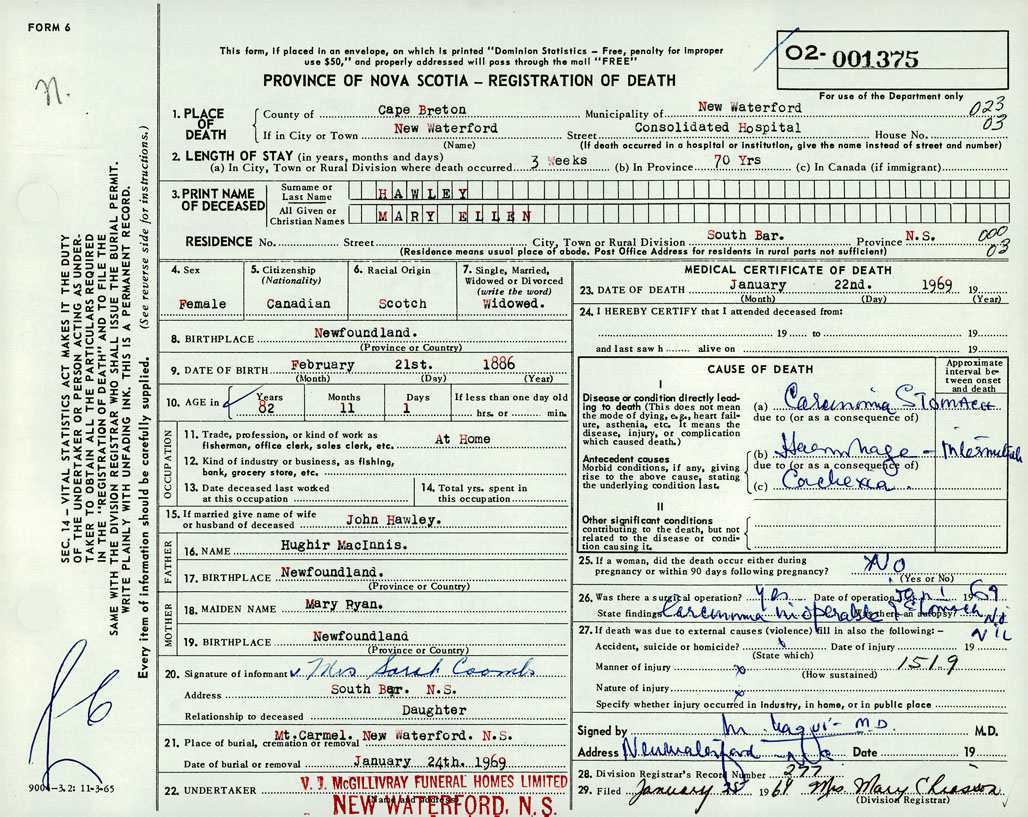 FORM 6
n.
This form, if placed in an envelope, on which is printed "Dominion Statistics – Free, penalty for improper
use $50," and properly addressed will pass through the mail "FREE"
PROVINCE OF NOVA SCOTIA – REGISTRATION OF DEATH
02- 001375
For use of the Department only
023
03
1. PLACE OF DEATH { County of Cape Breton Municipality of New Waterford
If in City or Town New Waterford Street Consolidated Hospital House No.
(Name) (If death occurred in a hospital or institution, give the name instead of street and number)
2. LENGTH OF STAY (in years, months and days)
(a) In City, Town or Rural Division where death occurred 3 Weeks (b) In Province 70 Yrs (c) In Canada (if immigrant)
3. PRINT NAME OF DECEASED
Surname or Last Name HAWLEY
All Given or Christian Names MARY ELLEN
RESIDENCE No. Street City, Town or Rural Division South Bar. Province N.S. 000
03
(Residence means usual place of abode. Post Office Address for residents in rural parts not sufficient)
4. Sex Female
5. Citizenship (Nationality) Canadian
6. Racial Origin Scotch
7. Single, Married, Widowed or Divorced (write the word) Widowed.
8. BIRTHPLACE Newfoundland.
(Province or Country)
9. DATE OF BIRTH February 21st. 1886
(Month) (Day) (Year)
10. AGE in { Years 82 Months 11 Days 1 If less than one day old hrs. or min.
OCCUPATION
11. Trade, profession, or kind of work as fisherman, office clerk, sales clerk, etc. At Home
12. Kind of industry or business, as fishing, bank, grocery store, etc.
13. Date deceased last worked at this occupation
14. Total yrs. spent in this occupation
15. If married give name of wife or husband of deceased John Hawley.
FATHER
16. NAME Hughir MacInnis.
17. BIRTHPLACE Newfoundland.
(Province or Country)
MOTHER
18. MAIDEN NAME Mary Ryan.
19. BIRTHPLACE Newfoundland
(Province or Country)
20. Signature of informant Mrs Sarah Coombs
Address South Bar. N.S.
Relationship to deceased Daughter
21. Place of burial, cremation or removal Mt.Carmel. New Waterford. N.S.
Date of burial or removal January 24th. 1969
22. UNDERTAKER V. J. McGILLIVRAY FUNERAL HOMES LIMITED
(Name and address)
NEW WATERFORD, N. S.
MEDICAL CERTIFICATE OF DEATH
23. DATE OF DEATH January 22nd. 1969 19
(Month) (Day) (Year)
24. I HEREBY CERTIFY that I attended deceased from:
19 to 19
and last saw h alive on 19
CAUSE OF DEATH
Approximate interval between onset and death
I
Disease or condition directly leading to death (This does not mean the mode of dying, e.g., heart failure, asthenia, etc. It means the disease, injury, or complication which caused death.)
(a) Carcinoma STOMACH
due to (or as a consequence of)
Antecedent causes
Morbid conditions, if any, giving rise to the above cause, stating the underlying condition last.
(b) Haemorrhage –
due to (or as a consequence of)
(c) Cachexia
II
Other significant conditions
contributing to the death, but not related to the disease or condition causing it.
25. If a woman, did the death occur either during pregnancy or within 90 days following pregnancy? NO
(Yes or No)
26. Was there a surgical operation? Yes Date of operation Jan 1 1969
State findings Carcinoma inoperable Stomach Was there an autopsy? No
27. If death was due to external causes (violence) fill in also the following:– NIL
Accident, suicide or homicide? Date of injury 19
(State which)
Manner of injury 151.9
(How sustained)
Nature of injury
Specify whether injury occurred in industry, in home, or in public place
Signed by M.D. M.D.
Address Newwaterford N.S. Date 19
28. Division Registrar's Record Number 277
29. Filed January 25 1969 Mrs. Mary Chiasson
(Division Registrar)
SEC. 14 – VITAL STATISTICS ACT MAKES IT THE DUTY
OF THE UNDERTAKER OR PERSON ACTING AS UNDER-
TAKER TO OBTAIN ALL THE PARTICULARS REQUIRED
IN THE "REGISTRATION OF DEATH" AND TO FILE THE
SAME WITH THE DIVISION REGISTRAR WHO SHALL ISSUE THE BURIAL PERMIT.
WRITE PLAINLY WITH UNFADING INK. THIS IS A PERMANENT RECORD.
Every item of information should be carefully supplied. (See reverse side for instructions.)
900-3.2: 11-3-65